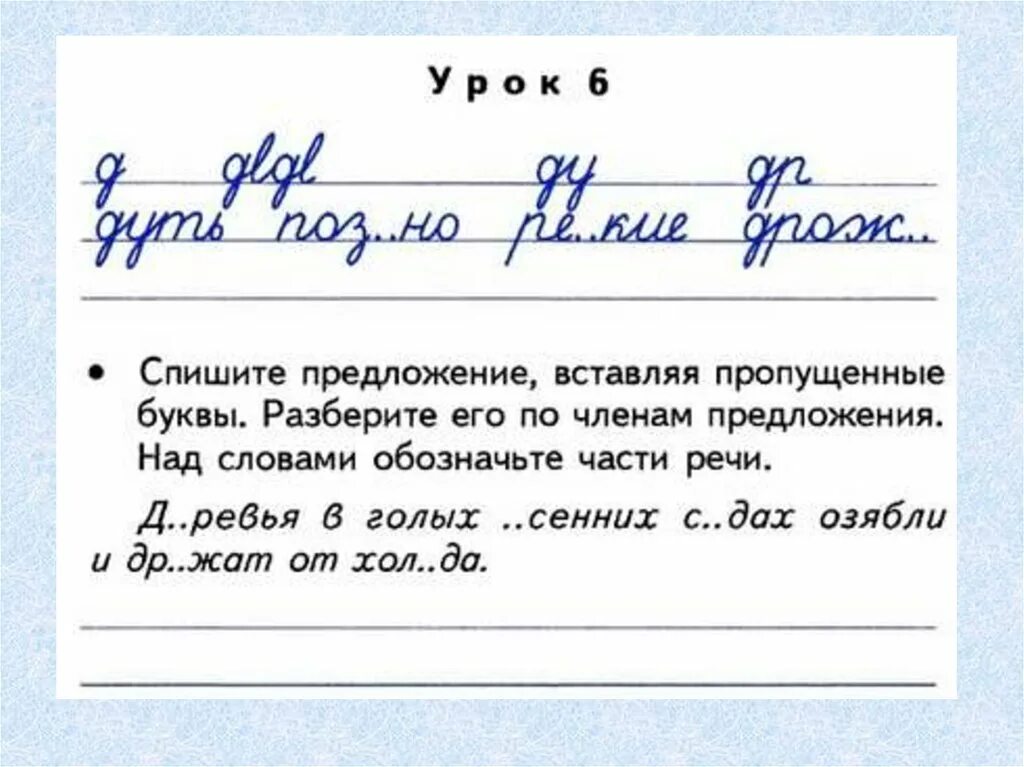 Урок 6
д двдв ду др
дуть поз..но ре..кие дрож..
• Спишите предложение, вставляя пропущенные
буквы. Разберите его по членам предложения.
Над словами обозначьте части речи.
Д..ревья в голых ..сенних с..дах озябли
и др..жат от хол..да.